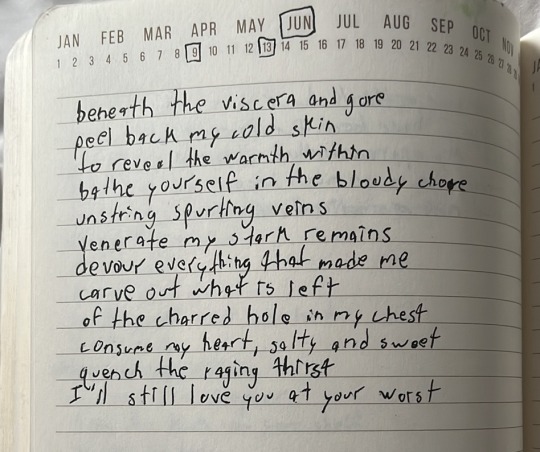 JAN FEB MAR APR MAY JUN JUL AUG SEP OCT NOV
1 2 3 4 5 6 7 8 9 10 11 12 13 14 15 16 17 18 19 20 21 22 23 24 25 26 27 28
beneath the viscera and gore
peel back my cold skin
to reveal the warmth within
bathe yourself in the bloody chore
unstring spurting veins
venerate my stark remains
devour everything that made me
carve out what is left
of the charred hole in my chest
consume my heart, salty and sweet
quench the raging thirst
I'll still love you at your worst